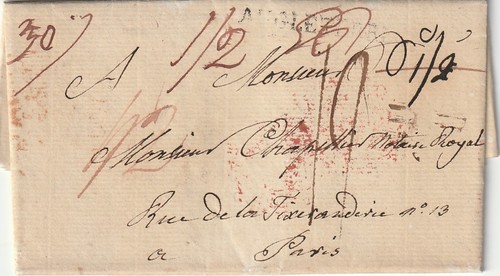 ANGLETERRE
30
1/2
A Monsieur
1/2
Monsieur Chapellier Notaire Royal
Rue de la Tixeranderie nº 13
a Paris